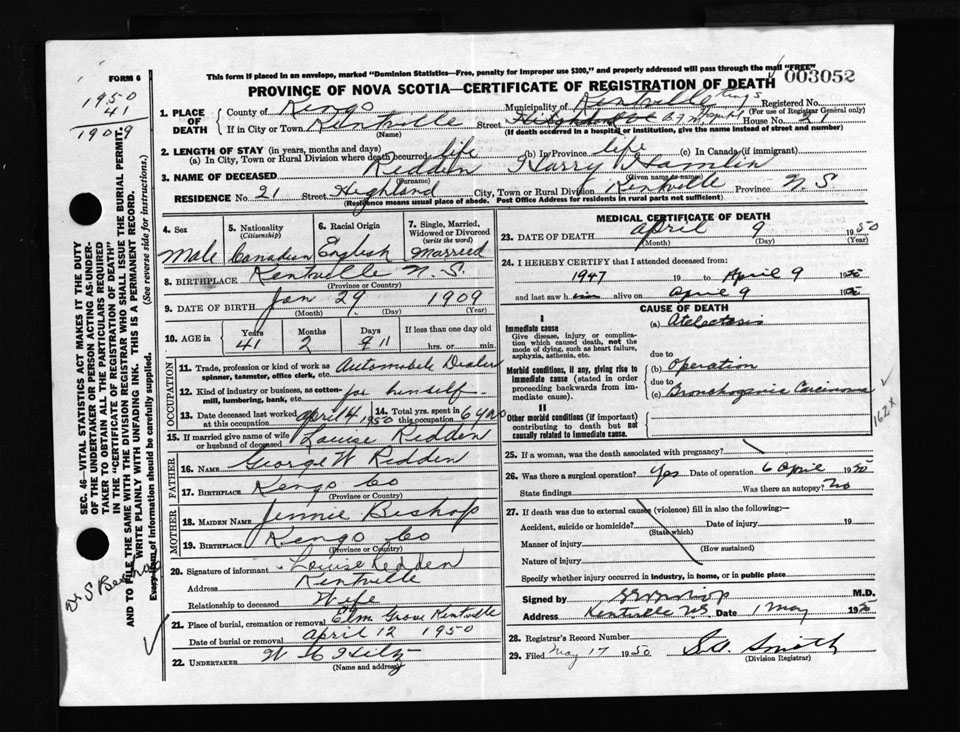 FORM 6
This form if placed in an envelope, marked "Dominion Statistics—Free, penalty for improper use $300," and properly addressed will pass through the mail "FREE"
003052
PROVINCE OF NOVA SCOTIA—CERTIFICATE OF REGISTRATION OF DEATH
1950
41
1909
1. PLACE OF DEATH
County of Kings Municipality of Kentville Kings Registered No. (For use of Registrar General only)
If in City or Town Kentville (Name) Street Hospital House No. 21
(If death occurred in a hospital or institution, give the name instead of street and number)
2. LENGTH OF STAY (in years, months and days)
(a) In City, Town or Rural Division where death occurred life (b) In Province life (c) In Canada (if immigrant)
3. NAME OF DECEASED Redden Harry Hamlin
(Surname) (Given name or names)
RESIDENCE No. 21 Street Highland City, Town or Rural Division Kentville Province N.S.
(Residence means usual place of abode. Post Office Address for residents in rural parts not sufficient)
4. Sex Male
5. Nationality (Citizenship) Canadian
6. Racial Origin English
7. Single, Married, Widowed or Divorced (write the word) Married
8. BIRTHPLACE Kentville N.S.
(Province or Country)
9. DATE OF BIRTH Jan 29 1909
(Month) (Day) (Year)
10. AGE in Years 41 Months 2 Days 9 11 If less than one day old hrs. or min.
OCCUPATION
11. Trade, profession or kind of work as spinner, teamster, office clerk, etc. Automobile Dealer
12. Kind of industry or business, as cotton-mill, lumbering, bank, etc. for himself
13. Date deceased last worked at this occupation April 4 1950
14. Total yrs. spent in this occupation 6 yrs
15. If married give name of wife or husband of deceased Louise Redden
FATHER
16. Name George W Redden
17. Birthplace Kings Co
(Province or Country)
MOTHER
18. Maiden Name Jennie Bishop
19. Birthplace Kings Co
(Province or Country)
20. Signature of informant Louise Redden
Address Kentville
Relationship to deceased Wife
21. Place of burial, cremation or removal Elm Grove Kentville
Date of burial or removal April 12 1950
22. UNDERTAKER W Hiltz
(Name and address)
MEDICAL CERTIFICATE OF DEATH
23. DATE OF DEATH April 9 1950
(Month) (Day) (Year)
24. I HEREBY CERTIFY that I attended deceased from:
1947 19 to April 9 1950
and last saw him alive on April 9 1950
CAUSE OF DEATH
I
Immediate cause
Give disease, injury or complication which caused death, not the mode of dying, such as heart failure, asphyxia, asthenia, etc.
(a) Atelectasis
due to
Morbid conditions, if any, giving rise to immediate cause (stated in order proceeding backwards from immediate cause).
(b) Operation
due to
(c) Bronchogenic Carcinoma
162x
II
Other morbid conditions (if important) contributing to death but not causally related to immediate cause.
25. If a woman, was the death associated with pregnancy?
26. Was there a surgical operation? Yes Date of operation 6 April 1950
State findings Was there an autopsy? No
27. If death was due to external causes (violence) fill in also the following:—
Accident, suicide or homicide? Date of injury 19
(State which)
Manner of injury
(How sustained)
Nature of injury
Specify whether injury occurred in industry, in home, or in public place
Signed by M.D.
Address Kentville NS Date 1 May 1950
28. Registrar's Record Number
29. Filed May 17 1950 Smith
(Division Registrar)
SEC. 46—VITAL STATISTICS ACT MAKES IT THE DUTY
OF THE UNDERTAKER OR PERSON ACTING AS UNDER-
TAKER TO OBTAIN ALL THE PARTICULARS REQUIRED
IN THE "CERTIFICATE OF REGISTRATION OF DEATH"
AND TO FILE THE SAME WITH THE DIVISION REGISTRAR WHO SHALL ISSUE THE BURIAL PERMIT.
WRITE PLAINLY WITH UNFADING INK. THIS IS A PERMANENT RECORD.
Every item of information should be carefully supplied. (See reverse side for instructions.)